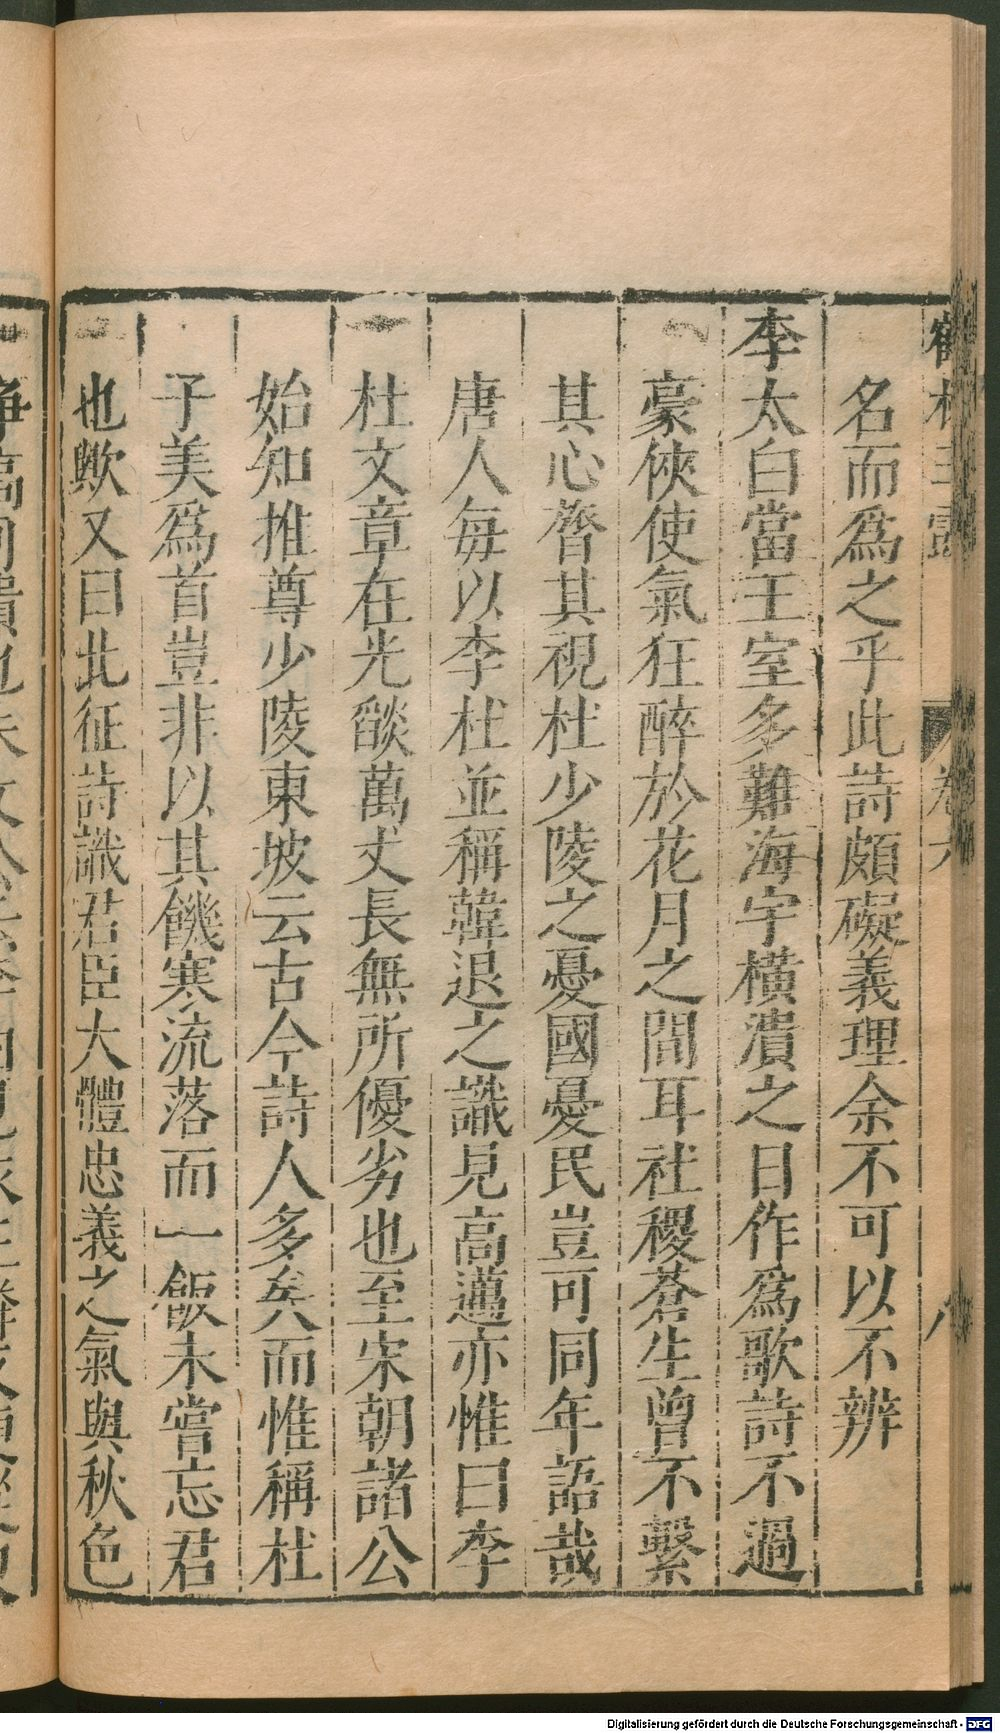 鶴林玉露 卷六 八
名而爲之乎此詩頗礙義理余不可以不辨
李太白當王室多難海宇橫潰之日作爲歌詩不過
豪俠使氣狂醉於花月之間耳社稷蒼生曾不繫
其心膂其視杜少陵之憂國憂民豈可同年語哉
唐人每以李杜並稱韓退之識見高邁亦惟曰李
杜文章在光燄萬丈長無所優劣也至宋朝諸公
始知推尊少陵東坡云古今詩人多矣而惟稱杜
子美爲首豈非以其饑寒流落而一飯未嘗忘君
也歟又曰北征詩識君臣大體忠義之氣與秋色
Digitalisierung gefördert durch die Deutsche Forschungsgemeinschaft - DFG